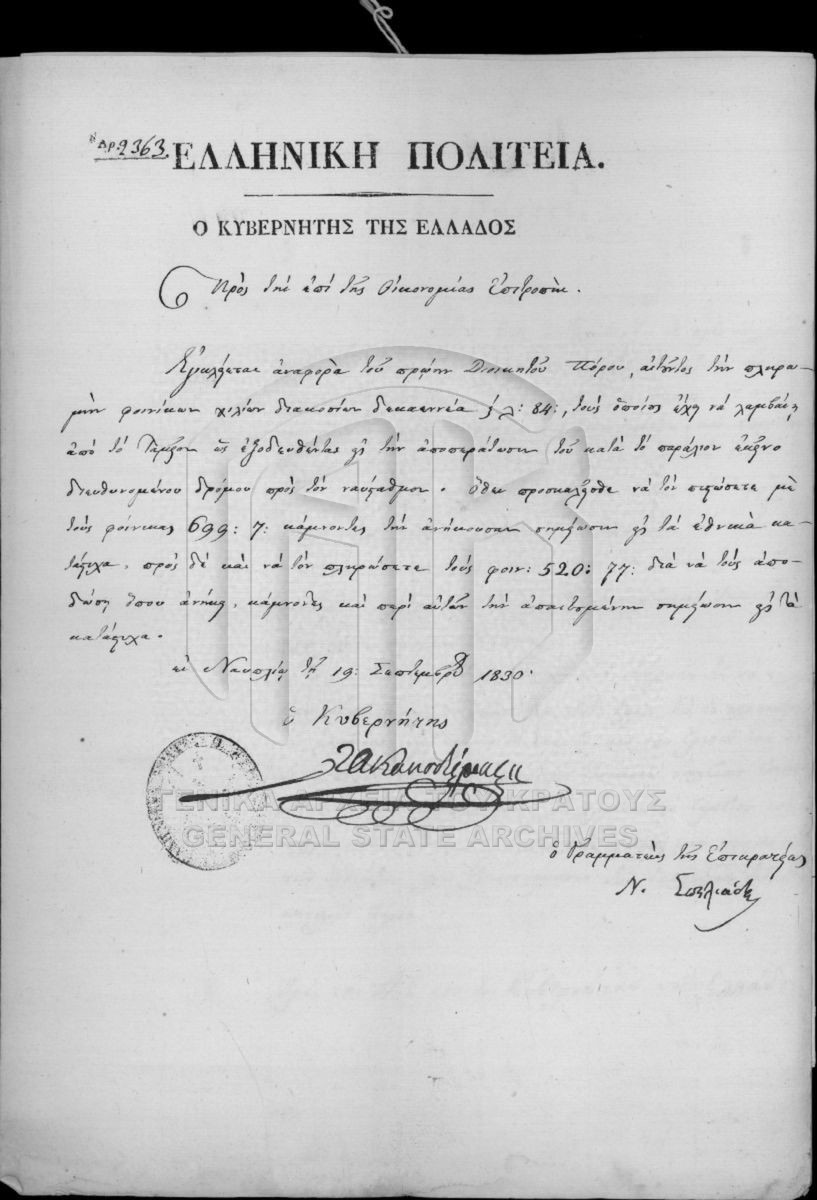 ΑΡ. 2363.
ΕΛΛΗΝΙΚΗ ΠΟΛΙΤΕΙΑ.
Ο ΚΥΒΕΡΝΗΤΗΣ ΤΗΣ ΕΛΛΑΔΟΣ
Πρὸς τὴν ἐπὶ τῆς Οἰκονομίας Ἐπιτροπὴν.
Ἐγκλείεται ἀναφορὰ τοῦ πρώην Διοικητοῦ Πόρου, αἰτοῦντος τὴν πληρω-
μὴν φοινίκων χιλίων διακοσίων δεκαεννέα λ: 84:, τοὺς ὁποίους ἔχει νὰ λαμβάνῃ
ἀπὸ τὸ Ταμεῖον ὡς ἐξοδευθέντας εἰς τὴν ἀποπεράτωσιν τοῦ κατὰ τὸ παράλιον ἐκεῖνο
διευθυνομένου δρόμου πρὸς τὸν ναύσταθμον. Ὅθεν προσκαλεῖσθε νὰ τὸν πιστώσετε μὲ
τοὺς φοίνικας 699: 7: κάμνοντες τὴν ἀνήκουσαν σημείωσιν εἰς τὰ ἐθνικὰ κα-
τάστιχα, πρὸς δὲ καὶ νὰ τὸν πληρώσετε τοὺς φοιν: 520: 77: διὰ νὰ τοὺς ἀπο-
δώσῃ ὅπου ἀνήκει, κάμνοντες καὶ περὶ αὐτῶν τὴν ἀπαιτουμένην σημείωσιν εἰς τὰ
κατάστιχα.
ἐν Ναυπλίῳ τῇ 19: Σεπτεμβρίου 1830.
ὁ Κυβερνήτης
Ι Α Καποδίστριας
ΓΕΝΙΚΑ ΑΡΧΕΙΑ ΤΟΥ ΚΡΑΤΟΥΣ
GENERAL STATE ARCHIVES
ὁ Γραμματεὺς τῆς Ἐπικρατείας
Ν. Σπηλιάδης